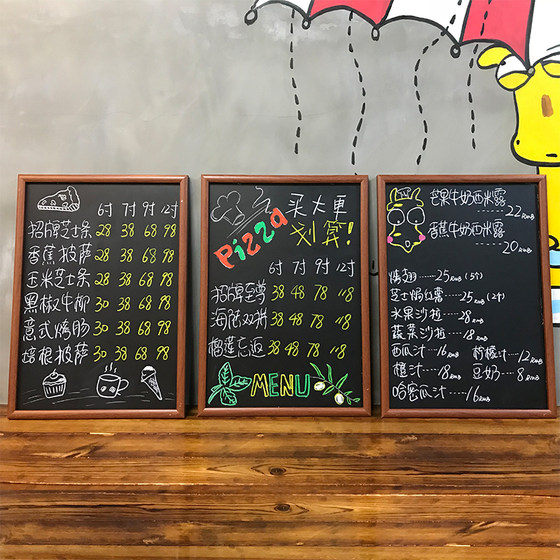 6寸 7寸 9寸 12寸
招牌芝士条 28 38 68 98
香蕉披萨 28 38 68 98
玉米芝士条 28 38 68 98
黑椒牛柳 30 38 68 98
意式烤肠 30 38 68 98
培根披萨 30 38 68 98
Pizza 买大更
划算!
6寸 7寸 9寸 12寸
招牌至尊 38 48 78 118
海陆双拼 38 48 78 118
榴莲忘返 38 48 78 118
MENU
芒果牛奶西米露
22RMB
香蕉牛奶西米露
20RMB
烤翅----25RMB(5个)
芝士焗红薯----25RMB(2个)
水果沙拉----28RMB
蔬菜沙拉----18RMB
西瓜汁----16RMB 柠檬汁----12RMB
橙汁----18RMB 豆奶----8RMB
哈密瓜汁----16RMB